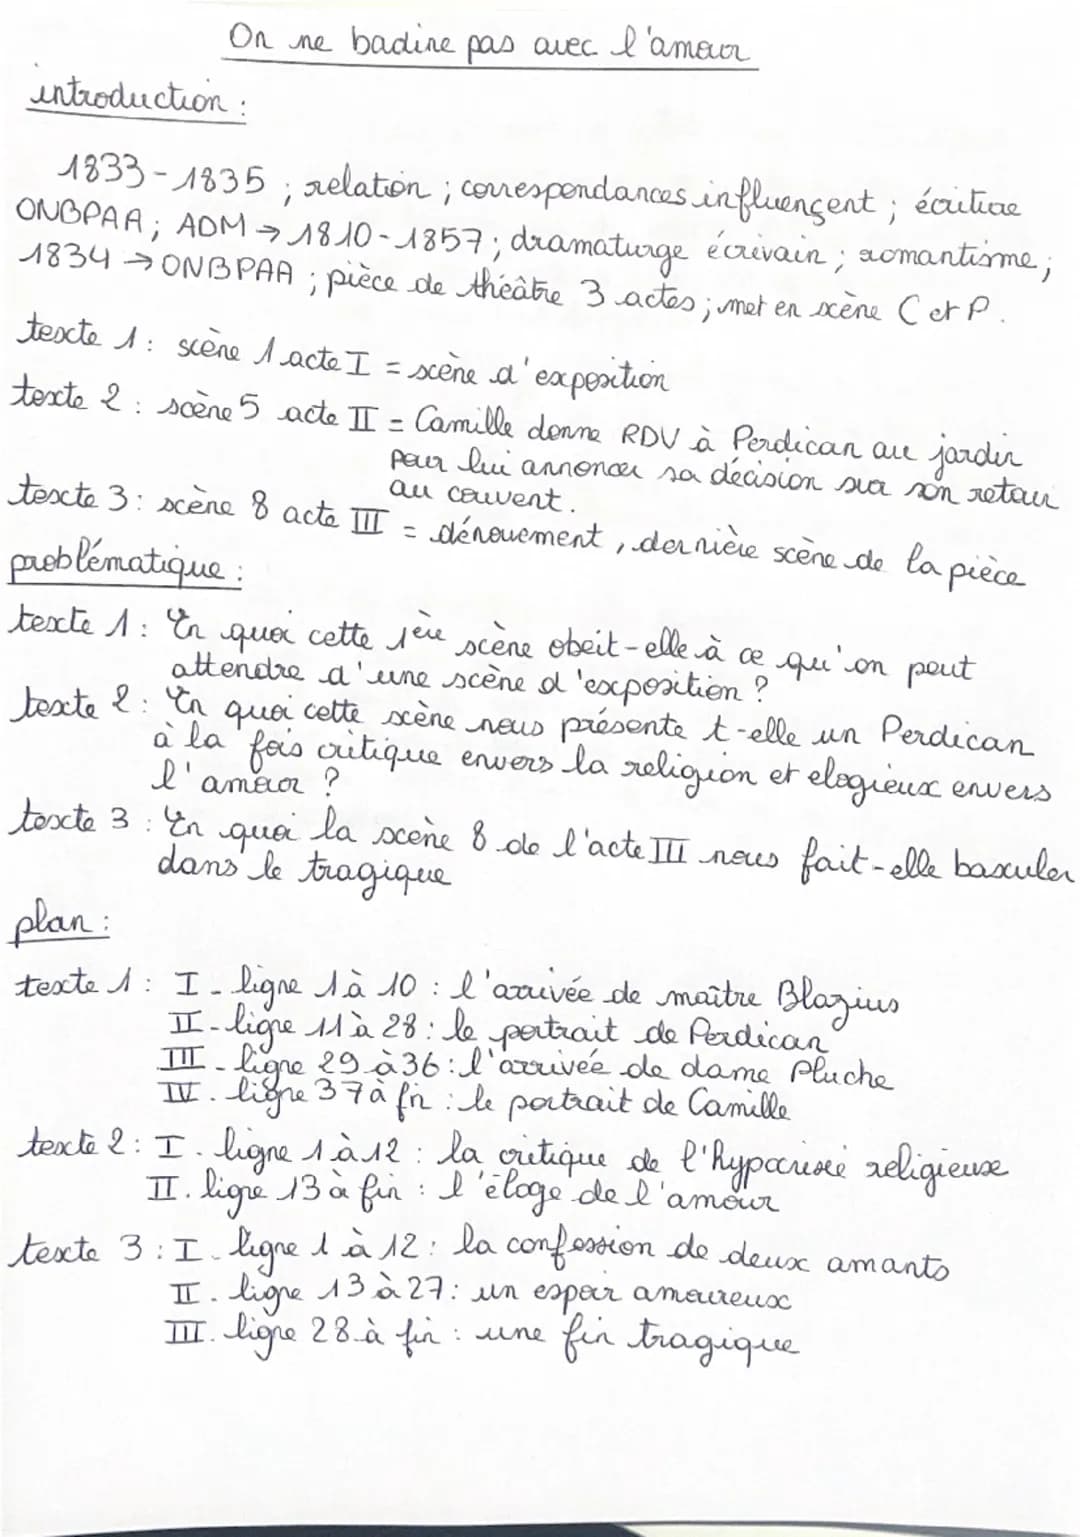 On ne badine pas avec l'amour
introduction :
1833-1835 ; relation ; correspondances influençent ; écriture
ONBPAA ; ADM → 1810-1857 ; dramaturge écrivain ; romantisme ;
1834 → ONBPAA ; pièce de théâtre 3 actes ; met en scène C et P.
texte 1 : scène 1 acte I = scène d'exposition
texte 2 : scène 5 acte II = Camille donne RDV à Perdican au jardin
pour lui annoncer sa décision sur son retour
au couvent.
texte 3 : scène 8 acte III = dénouement, dernière scène de la pièce
problématique :
texte 1 : En quoi cette 1ère scène obeit-elle à ce qu'on peut
attendre d'une scène d'exposition ?
texte 2 : En quoi cette scène nous présente t-elle un Perdican
à la fois critique envers la religion et elogieux envers
l'amour ?
texte 3 : En quoi la scène 8 de l'acte III nous fait-elle basculer
dans le tragique
plan :
texte 1 : I - ligne 1 à 10 : l'arrivée de maître Blazius
II - ligne 11 à 28 : le portrait de Perdican
III - ligne 29 à 36 : l'arrivée de dame Pluche
IV. ligne 37 à fin : le portrait de Camille
texte 2 : I. ligne 1 à 12 : la critique de l'hypocrisie religieuse
II. ligne 13 à fin : l'éloge de l'amour
texte 3 : I. ligne 1 à 12 : la confession de deux amants
II. ligne 13 à 27 : un espoir amoureux
III. ligne 28 à fin : une fin tragique